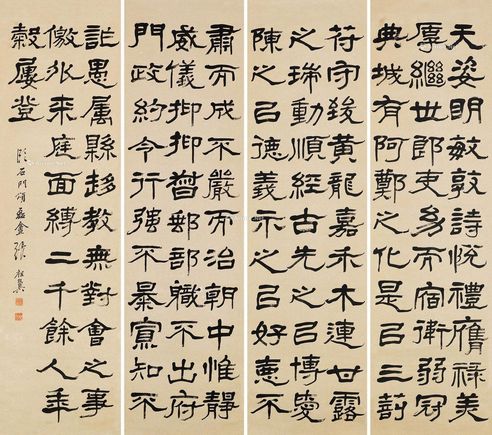 天姿明敏敦詩悅禮膺祿美
厚繼世郎吏幼而宿衛弱冠
典城有阿鄭之化是㠯三剖
符守致黃龍嘉禾木連甘露
之瑞動順經古先之㠯博愛
陳之㠯德義示之㠯好惡不
肅而成不嚴而治朝中惟靜
威儀抑抑督郵部職不出府
門政約令行強不暴寡知不
詐愚屬縣趍教無對會之事
徼外來庭面縛二千餘人年
穀屢登
臨石門頌磊盦張祖翼